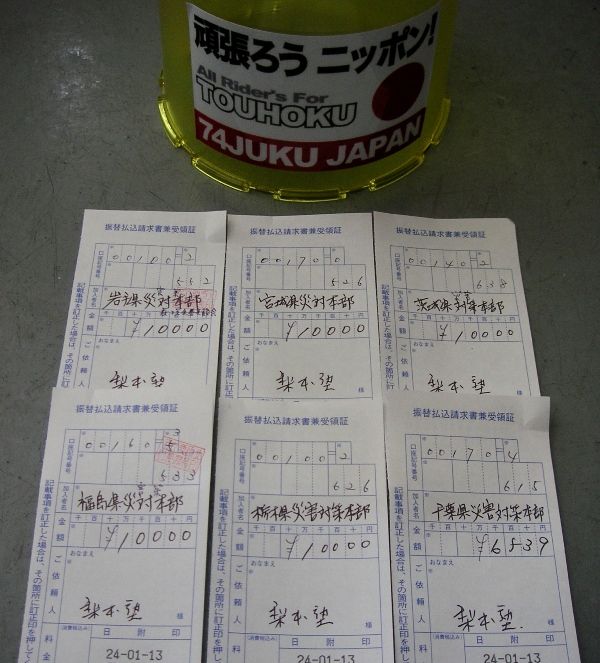 頑張ろうニッポン!
All Rider's For
TOUHOKU
74JUKU JAPAN
振替払込請求書兼受領証
口座記号番号
00100=2
552
加入者名
岩手県災対本部
金額
千百十万千百十円
¥10000
ご依頼人
おなまえ
梨本塾
様
記載事項を訂正した場合は、その箇所に訂
振替払込請求書兼受領証
口座記号番号
00170=0
526
加入者名
宮城県災対本部
金額
千百十万千百十円
¥10000
ご依頼人
おなまえ
梨本塾
様
記載事項を訂正した場合は、その箇所に訂
振替払込請求書兼受領証
口座記号番号
00140=2
638
加入者名
茨城県災対本部
金額
千百十万千百十円
¥10000
ご依頼人
おなまえ
梨本塾
様
記載事項を訂正した場合は、その箇所に訂
振替払込請求書兼受領証
口座記号番号
00160=
3
533
加入者名
福島県災対本部
金額
千百十万千百十円
¥10000
ご依頼人
おなまえ
梨本塾
様
料
(消費税込み)
日附印
24-01-13
記載事項を訂正した場合は、その箇所に訂正印を押してく
振替払込請求書兼受領証
口座記号番号
00100=2
626
加入者名
栃木県災害対策本部
金額
千百十万千百十円
¥10000
ご依頼人
おなまえ
梨本塾
様
料
(消費税込み)
日附印
24-01-13
記載事項を訂正した場合は、その箇所に訂正印を押してく
振替払込請求書兼受領証
口座記号番号
00170=4
615
加入者名
千葉県災害対策本部
金額
千百十万千百十円
¥6539
ご依頼人
おなまえ
梨本塾
様
料
(消費税込み)
日附印
24-01-13
記載事項を訂正した場合は、その箇所に訂正印を押して